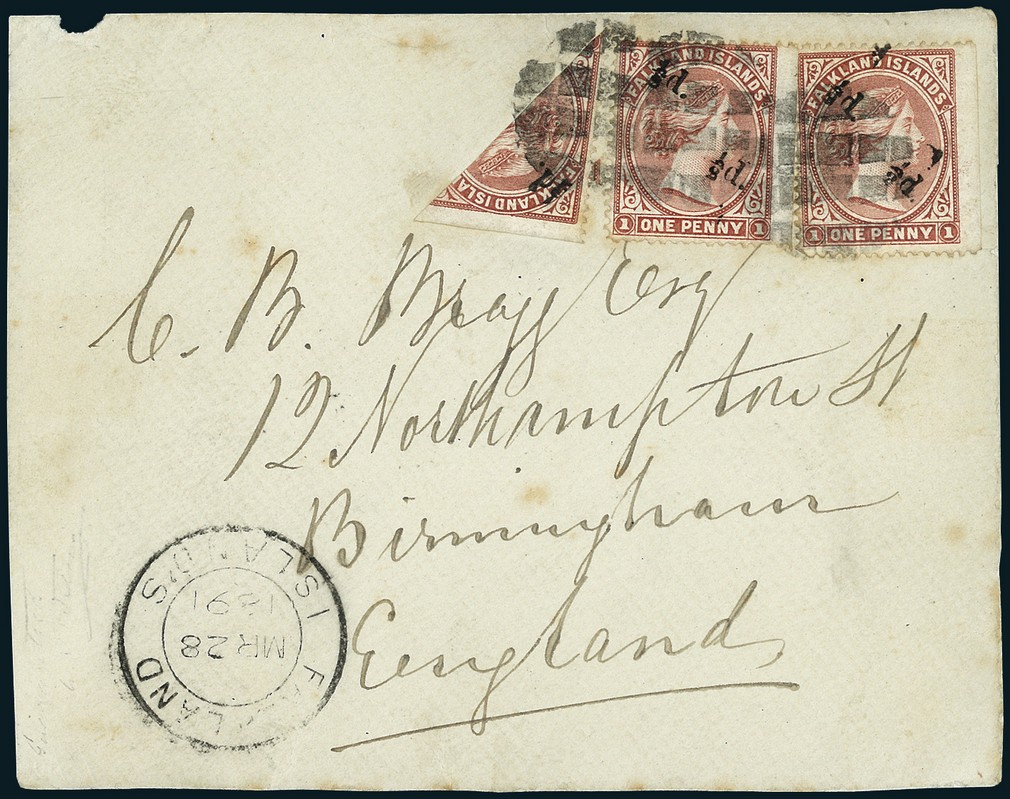 ½d.
FALKLAND ISLA
FALKLAND ISLANDS
½d.
½d.
1 ONE PENNY 1
FALKLAND ISLANDS
½d.
½d.
1 ONE PENNY 1
C. B. Bragg Esq
12 Northampton St
Birmingham
England
FALKLAND ISLANDS
MR 28
1891